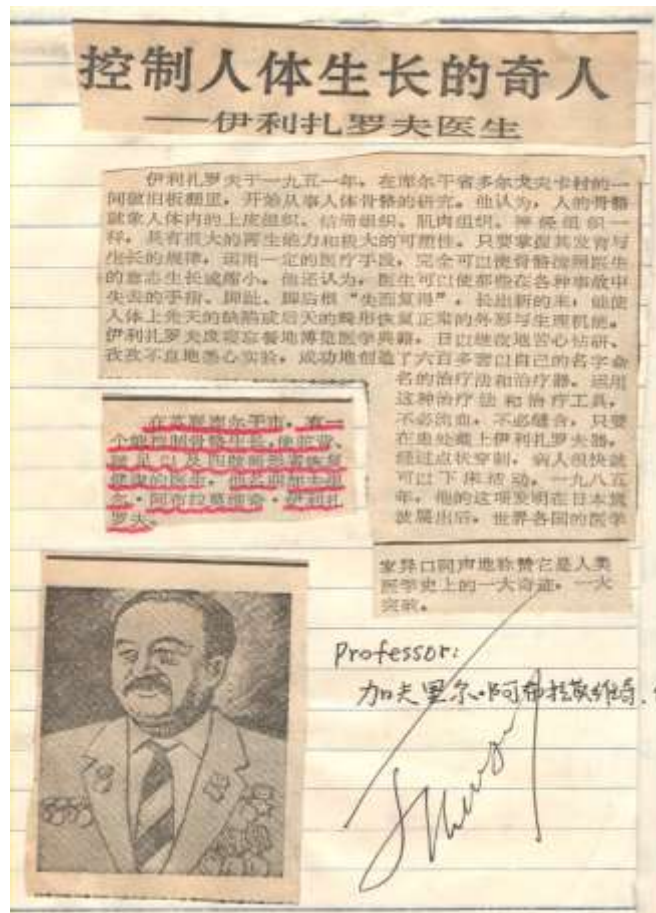 控制人体生长的奇人
——伊利扎罗夫医生
伊利扎罗夫于一九五一年，在库尔干省多尔戈夫卡村的一
间破旧板棚里，开始从事人体骨骼的研究。他认为，人的骨骼
就象人体内的上皮组织、结缔组织、肌肉组织、神经组织一
样，具有很大的再生能力和极大的可塑性。只要掌握其发育与
生长的规律，运用一定的医疗手段，完全可以使骨骼按照医生
的意志生长或缩小。他还认为，医生可以使那些在各种事故中
失去的手指、脚趾、脚后根“失而复得”，长出新的来，能使
人体上先天的缺陷或后天的畸形恢复正常的外形与生理机能。
伊利扎罗夫废寝忘餐地博览医学典籍，日以继夜地苦心钻研、
孜孜不息地悉心实验，成功地创造了六百多套以自己的名字命
名的治疗法和治疗器。运用
这种治疗法和治疗工具，
不必流血，不必缝合，只要
在患处戴上伊利扎罗夫器，
经过点状穿刺，病人很快就
可以下床活动。一九八五
年，他的这项发明在日本筑
波展出后，世界各国的医学
家异口同声地称赞它是人类
医学史上的一大奇迹，一大
突破。
在苏联库尔干市，有一
个能控制骨骼生长，使
以及四肢畸形者恢复
健康的医生，他名叫加夫里
尔·阿布拉莫维奇·伊利扎
罗夫。
Professor:
加夫里尔·阿布拉莫维奇